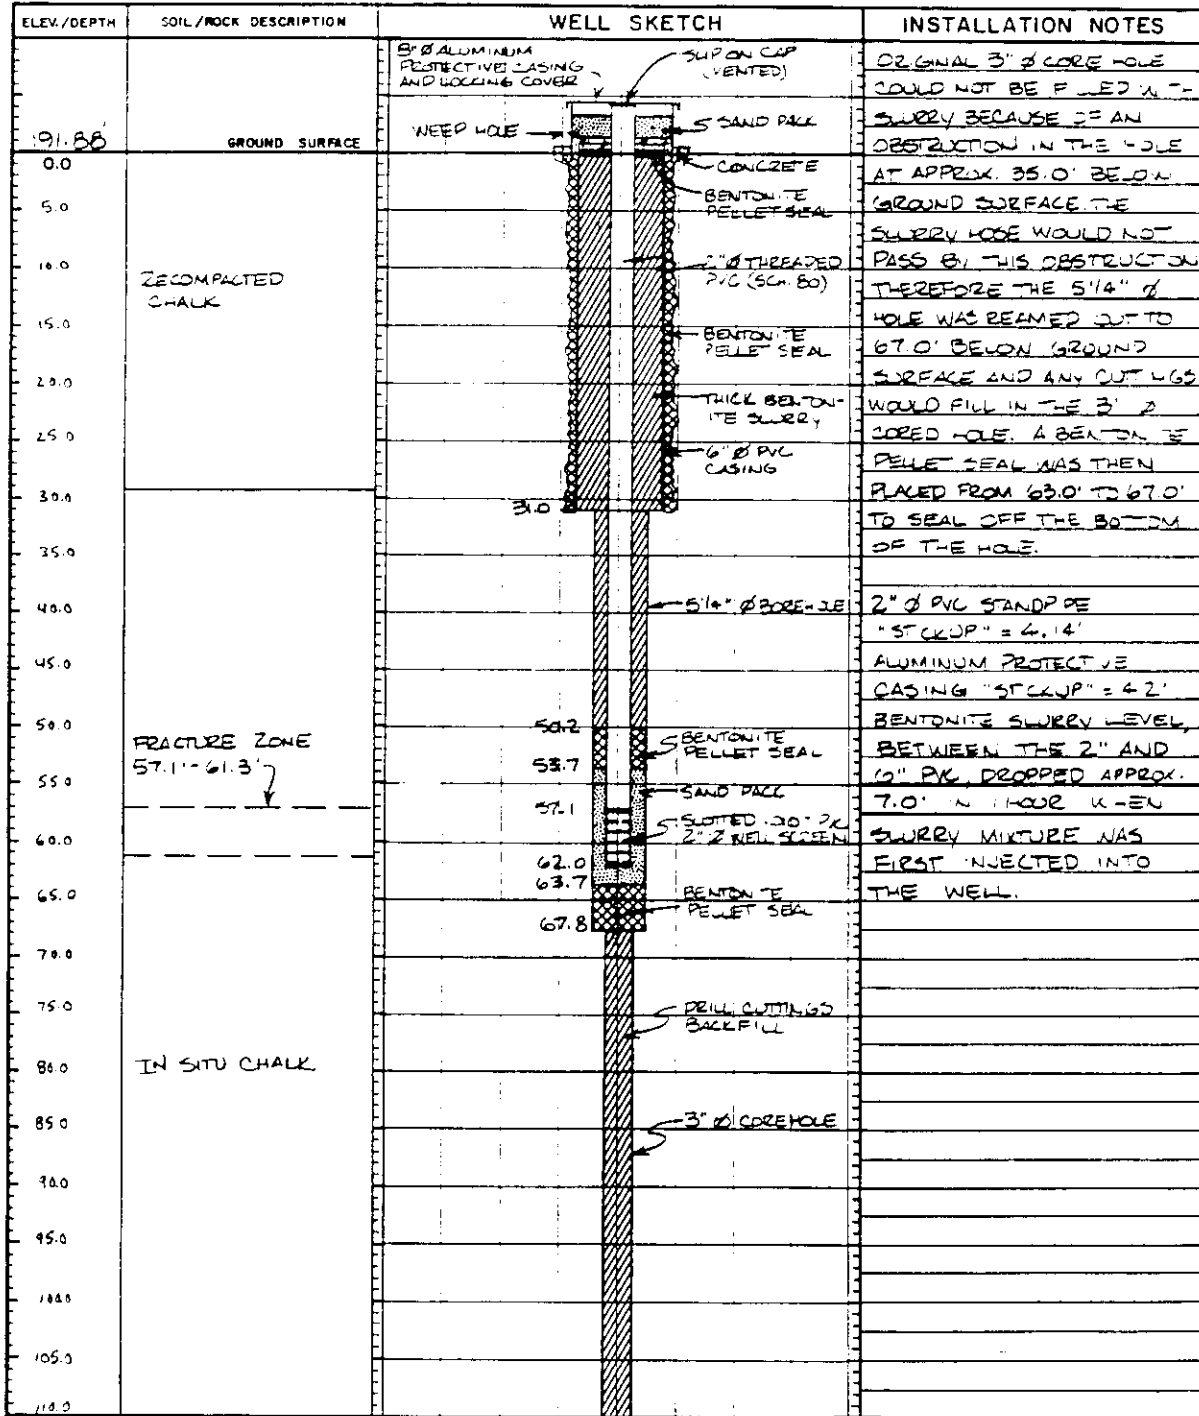 ELEV./DEPTH
SOIL/ROCK DESCRIPTION
WELL SKETCH
INSTALLATION NOTES
191.88
GROUND SURFACE
0.0
5.0
10.0
15.0
20.0
25.0
30.0
35.0
40.0
45.0
50.0
55.0
60.0
65.0
70.0
75.0
80.0
85.0
90.0
95.0
100.0
105.0
110.0
RECOMPACTED
CHALK
FRACTURE ZONE
57.1'-61.3'
IN SITU CHALK
8" Ø ALUMINUM
PROTECTIVE CASING
AND LOCKING COVER
SLIP ON CAP
(VENTED)
WEEP HOLE
SAND PACK
CONCRETE
BENTONITE
PELLET SEAL
2" Ø THREADED
PVC (SCH. 80)
BENTONITE
PELLET SEAL
THICK BENTON-
ITE SLURRY
6" Ø PVC
CASING
31.0
5 1/4" Ø BOREHOLE
50.2
BENTONITE
PELLET SEAL
53.7
SAND PACK
57.1
SLOTTED .010" PVC
2" Ø WELL SCREEN
62.0
63.7
BENTONITE
PELLET SEAL
67.8
DRILL CUTTINGS
BACKFILL
3" Ø COREHOLE
ORIGINAL 3" Ø CORE HOLE
COULD NOT BE FILLED WITH
SLURRY BECAUSE OF AN
OBSTRUCTION IN THE HOLE
AT APPROX. 35.0' BELOW
GROUND SURFACE. THE
SLURRY HOSE WOULD NOT
PASS BY THIS OBSTRUCTION
THEREFORE THE 5 1/4" Ø
HOLE WAS REAMED OUT TO
67.0' BELOW GROUND
SURFACE AND ANY CUTTINGS
WOULD FILL IN THE 3" Ø
CORED HOLE. A BENTONITE
PELLET SEAL WAS THEN
PLACED FROM 63.0' TO 67.0'
TO SEAL OFF THE BOTTOM
OF THE HOLE.
2" Ø PVC STANDPIPE
"STICKUP" = 4.14'
ALUMINUM PROTECTIVE
CASING "STICKUP" = 4.2'
BENTONITE SLURRY LEVEL,
BETWEEN THE 2" AND
6" PVC, DROPPED APPROX.
7.0' IN 1 HOUR WHEN
SLURRY MIXTURE WAS
FIRST INJECTED INTO
THE WELL.